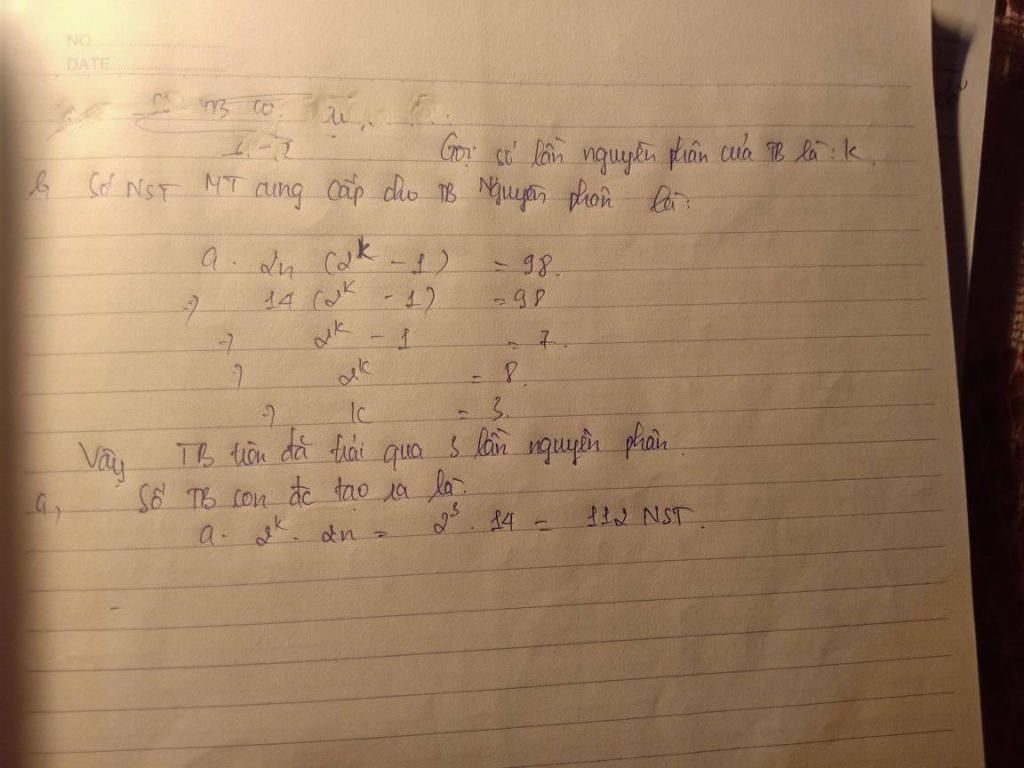 NO
DATE
TB có
Gọi số lần nguyên phân của TB là: k.
b, Số NST MT cung cấp cho TB Nguyên phân là:
a. 2n (2^k - 1) = 98.
=> 14 (2^k - 1) = 98
=> 2^k - 1 = 7.
=> 2^k = 8.
=> k = 3.
Vậy TB trên đã trải qua 3 lần nguyên phân.
a, Số TB con đc tạo ra là:
a. 2^k. 2n = 2^3. 14 = 112 NST.